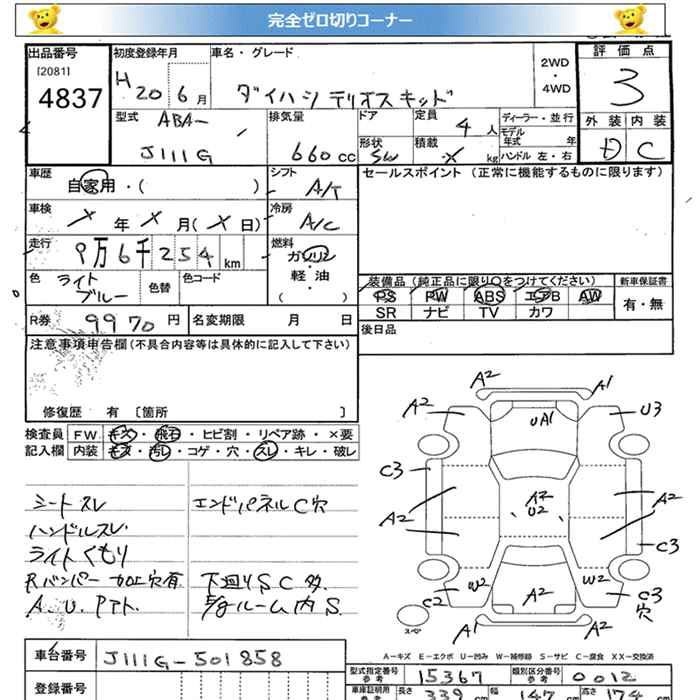 完全ゼロ切りコーナー
出品番号 初度登録年月 車名・グレード 評価点
[2081] 4837 H 20 6月 ダイハツ テリオスキッド 2WD・4WD 3
型式 ABA- J111G 排気量 660cc ドア 定員 4人 ディーラー・並行 外装 内装
形状 SW 積載 X kg モデル年式 年 ハンドル 左・右 D C
車歴 自家用・( ) シフト A/T セールスポイント (正常に機能するものに限ります)
車検 X 年 X 月(X 日) 冷房 A/C
走行 9万6千254km 燃料 ガソリン・軽油 ( )
色 ライトブルー 色替 色コード 装備品 (純正品に限り○をつけてください) 新車保証書
PS PW ABS エアB AW 有・無
SR ナビ TV カワ
R券 9970円 名変期限 月 日 後日品
注意事項申告欄(不具合内容等は具体的に記入して下さい)
修復歴 有 [箇所 ]
検査員記入欄 FW キズ・飛石・ヒビ割・リペア跡・×要
内装 キズ・汚レ・コゲ・穴・スレ・キレ・破レ
シートスレ エンドパネルC穴
ハンドルスレ
ライトくもり
Rバンパー加工穴有 下廻りSC多
A.U.Pタト. ルーム内S.
A2 A1
A2 UA1 U3
C3
A2 A2 U2 A2
C3
W2 W2
C2 A2 C3穴
スペア A1 A2
A-キズ E-エクボ U-凹み W-補修跡 S-サビ C-腐食 XX-交換済
車台番号 J111G-501858
型式指定番号 参考 15367 類別区分番号 参考 0012
登録番号 車庫証明用 参考 長さ 339 幅 147 高さ 174 cm